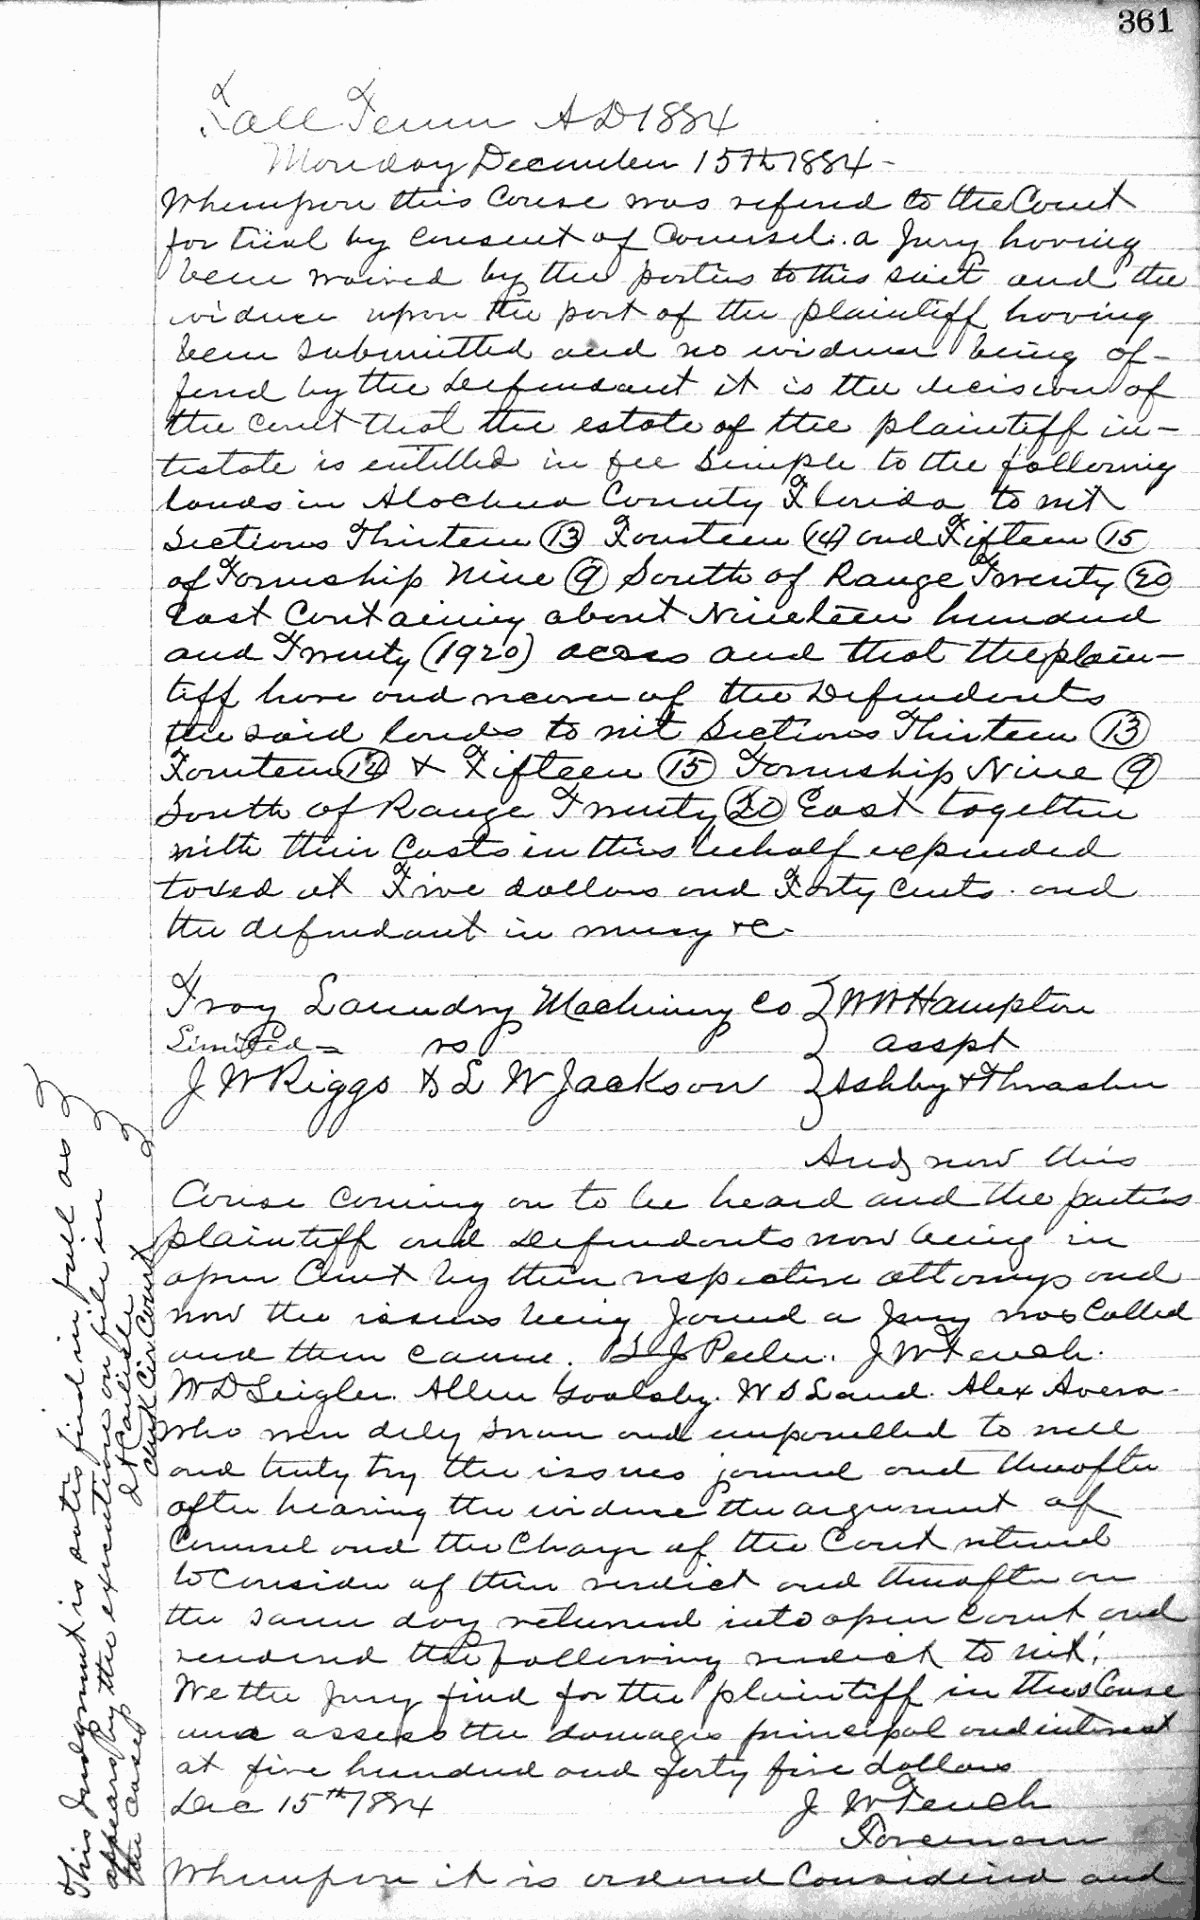 361
Fall Term AD 1884
Monday December 15th 1884-
Whereupon this Cause was referred to the Court
for trial by consent of Counsel. a Jury having
been waived by the parties to this suit and the
evidence upon the part of the plaintiff having
been submitted and no evidence being of-
fered by the Defendant it is the decision of
the court that the estate of the plaintiff in-
testate is entitled in fee simple to the following
lands in Alachua County Florida to wit
Sections Thirteen (13) Fourteen (14) and Fifteen (15
of Township Nine (9) South of Range Twenty (20
East Containing about Nineteen hundred
and Twenty (1920) acres and that the plain-
tiff have and recover of the Defendants
the said lands to wit Sections Thirteen (13)
Fourteen (14) & Fifteen (15) Township Nine (9)
South of Range Twenty (20) East together
with their Costs in this behalf expended
taxed at Five dollars and Forty cents. and
the defendant in mercy &c-
Troy Laundry Machinery Co } WW Hampton
Limited= vs } asspt
J W Riggs & L W Jackson } Ashby & Thrasher
And now this
Cause coming on to be heard and the parties
plaintiff and Defendants now being in
open Court by their respective attorneys and
now the issues being Joined a Jury was Called
and then came. J Peeler. J W Tench.
W D Seigler. Allen Goolsby. W S Land. Alex Avera-
who were duly sworn and empanelled to well
and truly try the issues joined and thereafter
after hearing the evidence the argument of
Counsel and the Charge of the Court retired
to Consider of their verdict and thereafter on
the same day returned into open Court and
rendered the following verdict to wit:
We the Jury find for the plaintiff in this Cause
and assess the damages principal and interest
at five hundred and forty five dollars
Dec 15th 1884 J W Tench
Foreman
Whereupon it is ordered Considered and
This Judgment is satisfied in full as
appears by the execution on file in
the case
J A Carlisle
Clerk Cir Court